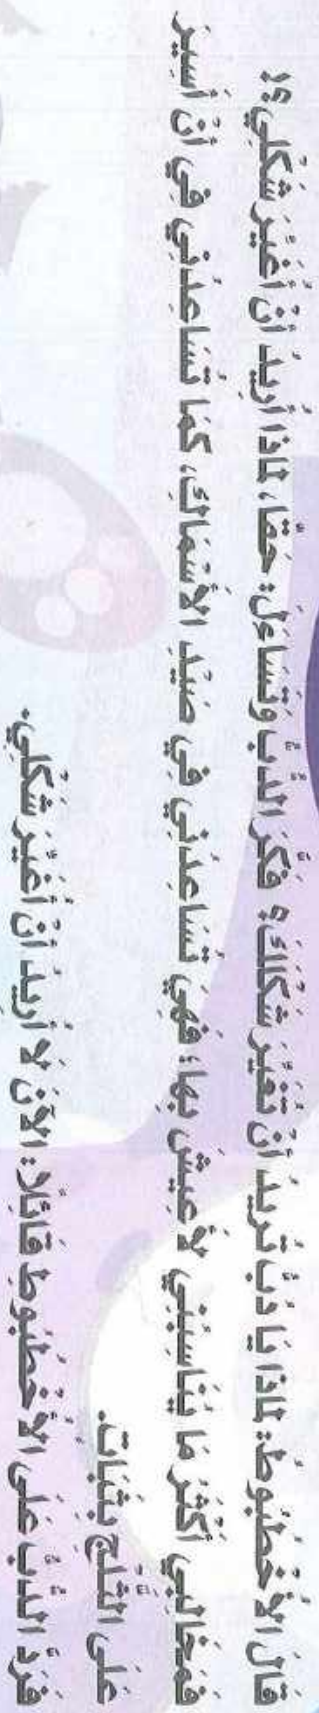 قَالَ الأُخْطُبُوطُ: لِمَاذَا يَا دُبُّ تُرِيدُ أَنْ تُغَيِّرَ شَكْلَكَ؟ فَكَّرَ الدُّبُّ وَتَسَاءَلَ: حَقًّا، لِمَاذَا أُرِيدُ أَنْ أُغَيِّرَ شَكْلِي؟!
فَمَخَالِبِي أَكْثَرُ مَا يُنَاسِبُنِي لأَعِيشَ بِهَا؛ فَهِيَ تُسَاعِدُنِي فِي صَيْدِ الأَسْمَاكِ، كَمَا تُسَاعِدُنِي فِي أَنْ أَسِيرَ
عَلَى الثَّلْجِ بِثَبَاتٍ.
فَرَدَّ الدُّبُّ عَلَى الأُخْطُبُوطِ قَائِلًا: الآنَ لَا أُرِيدُ أَنْ أُغَيِّرَ شَكْلِي.